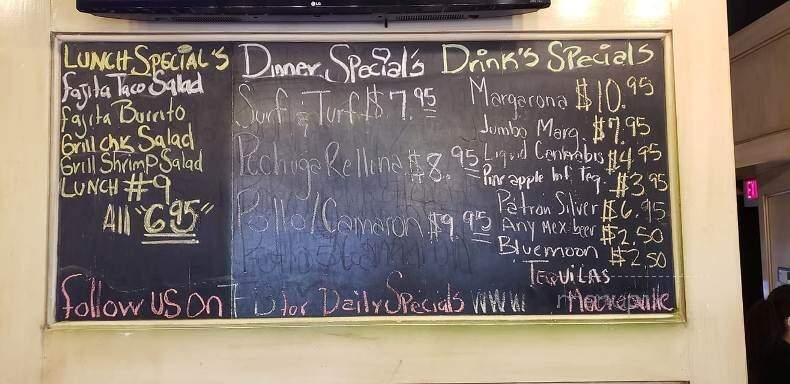 LG
LUNCH SPECIAL'S
fajita Taco Salad
fajita Burrito
Grill chk Salad
Grill Shrimp Salad
LUNCH #9
All "6.95"
Dinner Special's
Surf & Turf $7.95
Pechuga Rellena $8.95
Pollo/Camaron $9.95
Drink's Specials
Margarona $10.95
Jumbo Marg. $7.95
Liquid $4.95
Pineapple Inf Teq. $3.95
Patron Silver $6.95
Any Mex beer $2.50
Bluemoon $2.50
follow us on for Daily Specials WWW
TEQUILAS